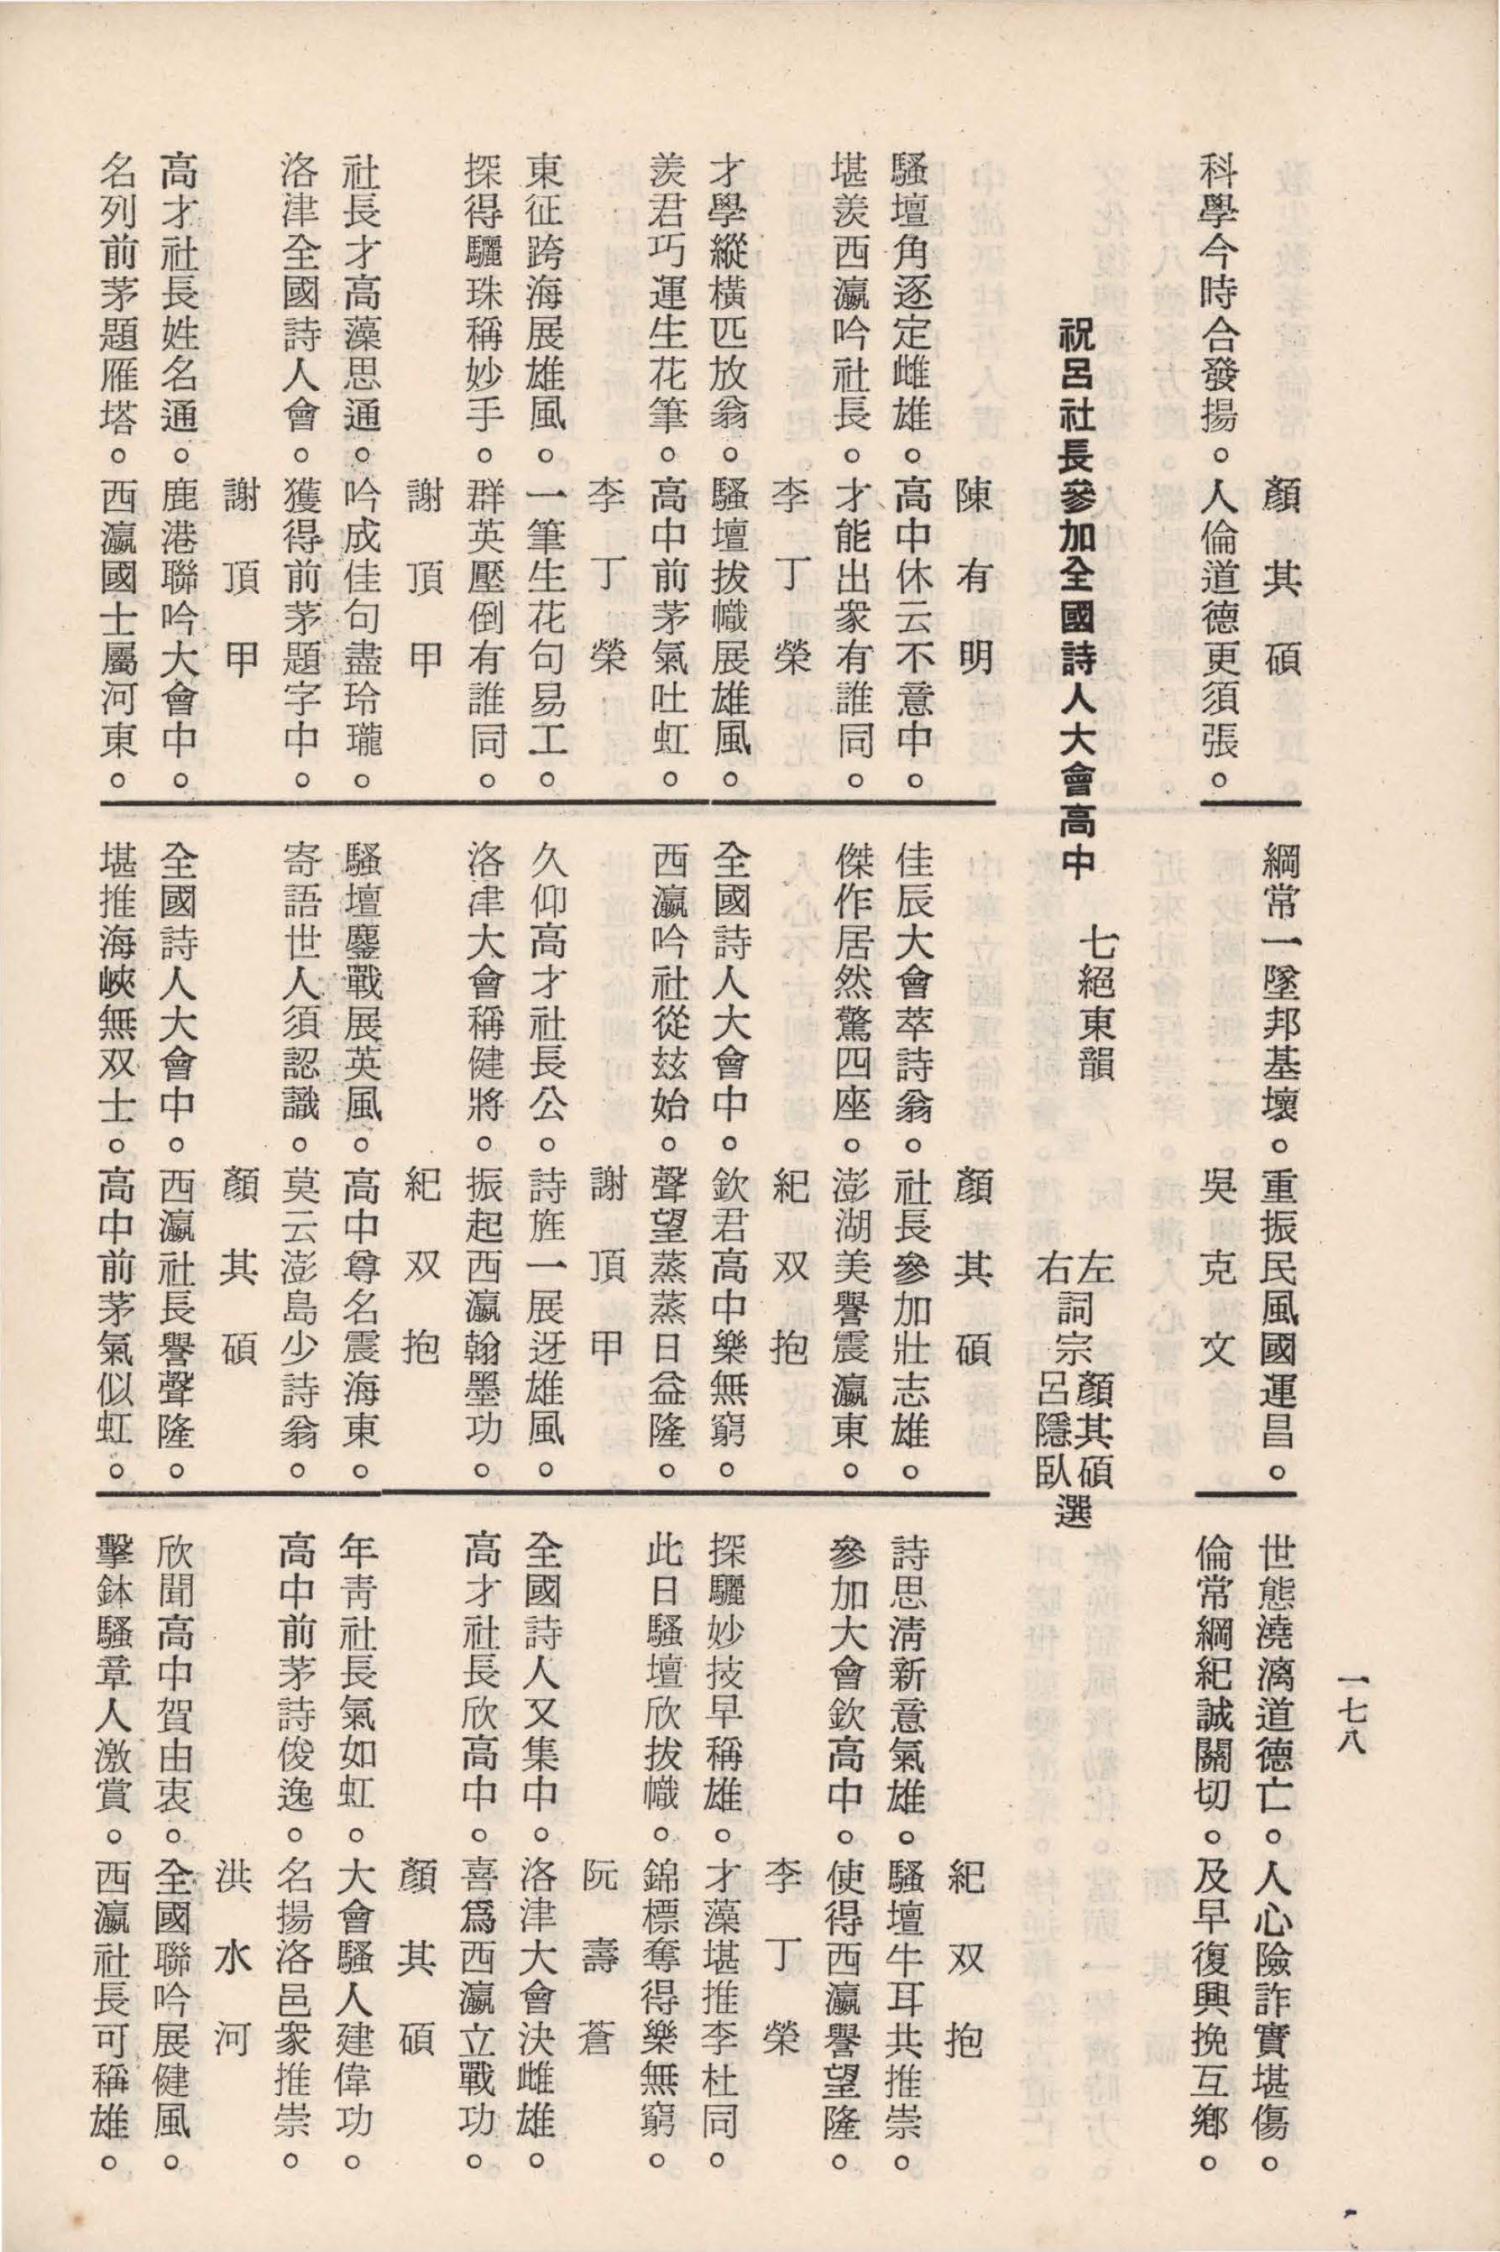 一七八
顏其碩
科學今時合發揚。人倫道德更須張。
綱常一墜邦基壞。重振民風國運昌。
吳克文
世態澆漓道德亡。人心險詐實堪傷。
倫常綱紀誠關切。及早復興挽互鄉。
祝呂社長參加全國詩人大會高中　七絕東韻　左右詞宗顏其碩呂隱臥選
陳有明
騷壇角逐定雌雄。高中休云不意中。
堪羨西瀛吟社長。才能出衆有誰同。
李丁榮
才學縱橫匹放翁。騷壇拔幟展雄風。
羨君巧運生花筆。高中前茅氣吐虹。
李丁榮
東征跨海展雄風。一筆生花句易工。
探得驪珠稱妙手。群英壓倒有誰同。
謝頂甲
社長才高藻思通。吟成佳句盡玲瓏。
洛津全國詩人會。獲得前茅題字中。
謝頂甲
高才社長姓名通。鹿港聯吟大會中。
名列前茅題雁塔。西瀛國士屬河東。
顏其碩
佳辰大會萃詩翁。社長參加壯志雄。
傑作居然驚四座。澎湖美譽震瀛東。
紀双抱
全國詩人大會中。欽君高中樂無窮。
西瀛吟社從玆始。聲望蒸蒸日益隆。
謝頂甲
久仰高才社長公。詩旌一展迓雄風。
洛津大會稱健將。振起西瀛翰墨功。
紀双抱
騷壇鏖戰展英風。高中尊名震海東。
寄語世人須認識。莫云澎島少詩翁。
顏其碩
全國詩人大會中。西瀛社長譽聲隆。
堪推海峽無双士。高中前茅氣似虹。
紀双抱
詩思淸新意氣雄。騷壇牛耳共推崇。
參加大會欽高中。使得西瀛譽望隆。
李丁榮
探驪妙技早稱雄。才藻堪推李杜同。
此日騷壇欣拔幟。錦標奪得樂無窮。
阮壽蒼
全國詩人又集中。洛津大會決雌雄。
高才社長欣高中。喜爲西瀛立戰功。
顏其碩
年靑社長氣如虹。大會騷人建偉功。
高中前茅詩俊逸。名揚洛邑衆推崇。
洪水河
欣聞高中賀由衷。全國聯吟展健風。
擊鉢騷章人激賞。西瀛社長可稱雄。